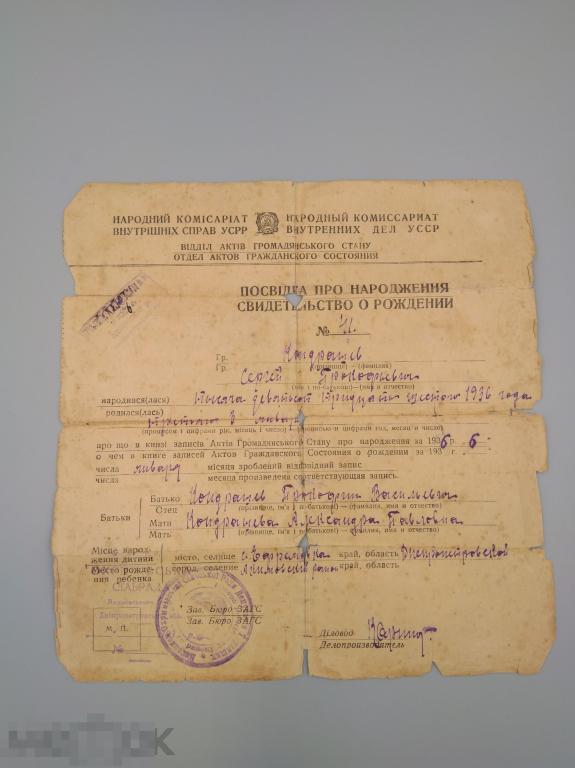 НАРОДНИЙ КОМІСАРІАТ
ВНУТРІШНІХ СПРАВ УСРР
НАРОДНЫЙ КОМИССАРИАТ
ВНУТРЕННИХ ДЕЛ УССР
ВІДДІЛ АКТІВ ГРОМАДЯНСЬКОГО СТАНУ
ОТДЕЛ АКТОВ ГРАЖДАНСКОГО СОСТОЯНИЯ
ПОСВІДКА ПРО НАРОДЖЕННЯ
СВИДЕТЕЛЬСТВО О РОЖДЕНИИ
№
Гр. Кондрашев
(прізвище) — (фамилия)
Гр. Сергей Прокофьевич
(ім'я і по-батькові) — (имя и отчество)
народився(лася) тысяча девятьсот тридцать шестого 1936 года
родился(лась) третьего 3 января
(прописом і цифрами рік, місяць і число) (прописью и цифрами год, месяц и число)
про що в книзі записів Актів Громадянського Стану про народження за 1936 р. 6
о чем в книге записей Актов Гражданского Состояния о рождении за 1936 г. 6
числа января місяця зроблений відповідний запис
числа месяца произведена соответствующая запись.
Батьки
Батько Кондрашев Прокофий Васильевич
Отец (прізвище, ім'я і по-батькові) — (фамилия, имя и отчество)
Мати Кондрашева Александра Павловна
Мать (прізвище, ім'я і по-батькові) — (фамилия, имя и отчество)
Місце народження дитини місто, селище с. Ефремовка край, область Днепропетровской
Место рождения ребенка город, селение Акимовский район край, область
Зав. Бюро ЗАГС
Зав. Бюро ЗАГС
М. П.
№
Діловод
Делопроизводитель